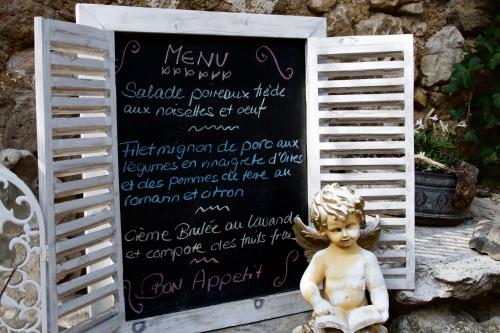 MENU
Salade poireaux tiède
aux noisettes et oeuf
Filet mignon de porc aux
légumes en vinaigrete d'Olives
et des pommes de terre au
romarin et citron
Crème Brulée au Lavande
et compote des fruits frais
Bon Appetit